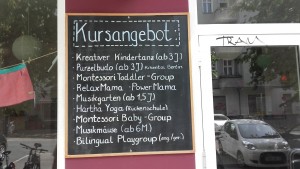 Kursangebot:
- Kreativer Kindertanz (ab 3J)
- Purzelbudo (ab 3J)
- Montessori Toddler-Group
- RelaxMama - PowerMama
- Musikgarten (ab 1,5J)
- Hatha Yoga (Rückenschule)
- Montessori Baby-Group
- Musikmäuse (ab 6M.)
- Bilingual Playgroup (eng/ger.)